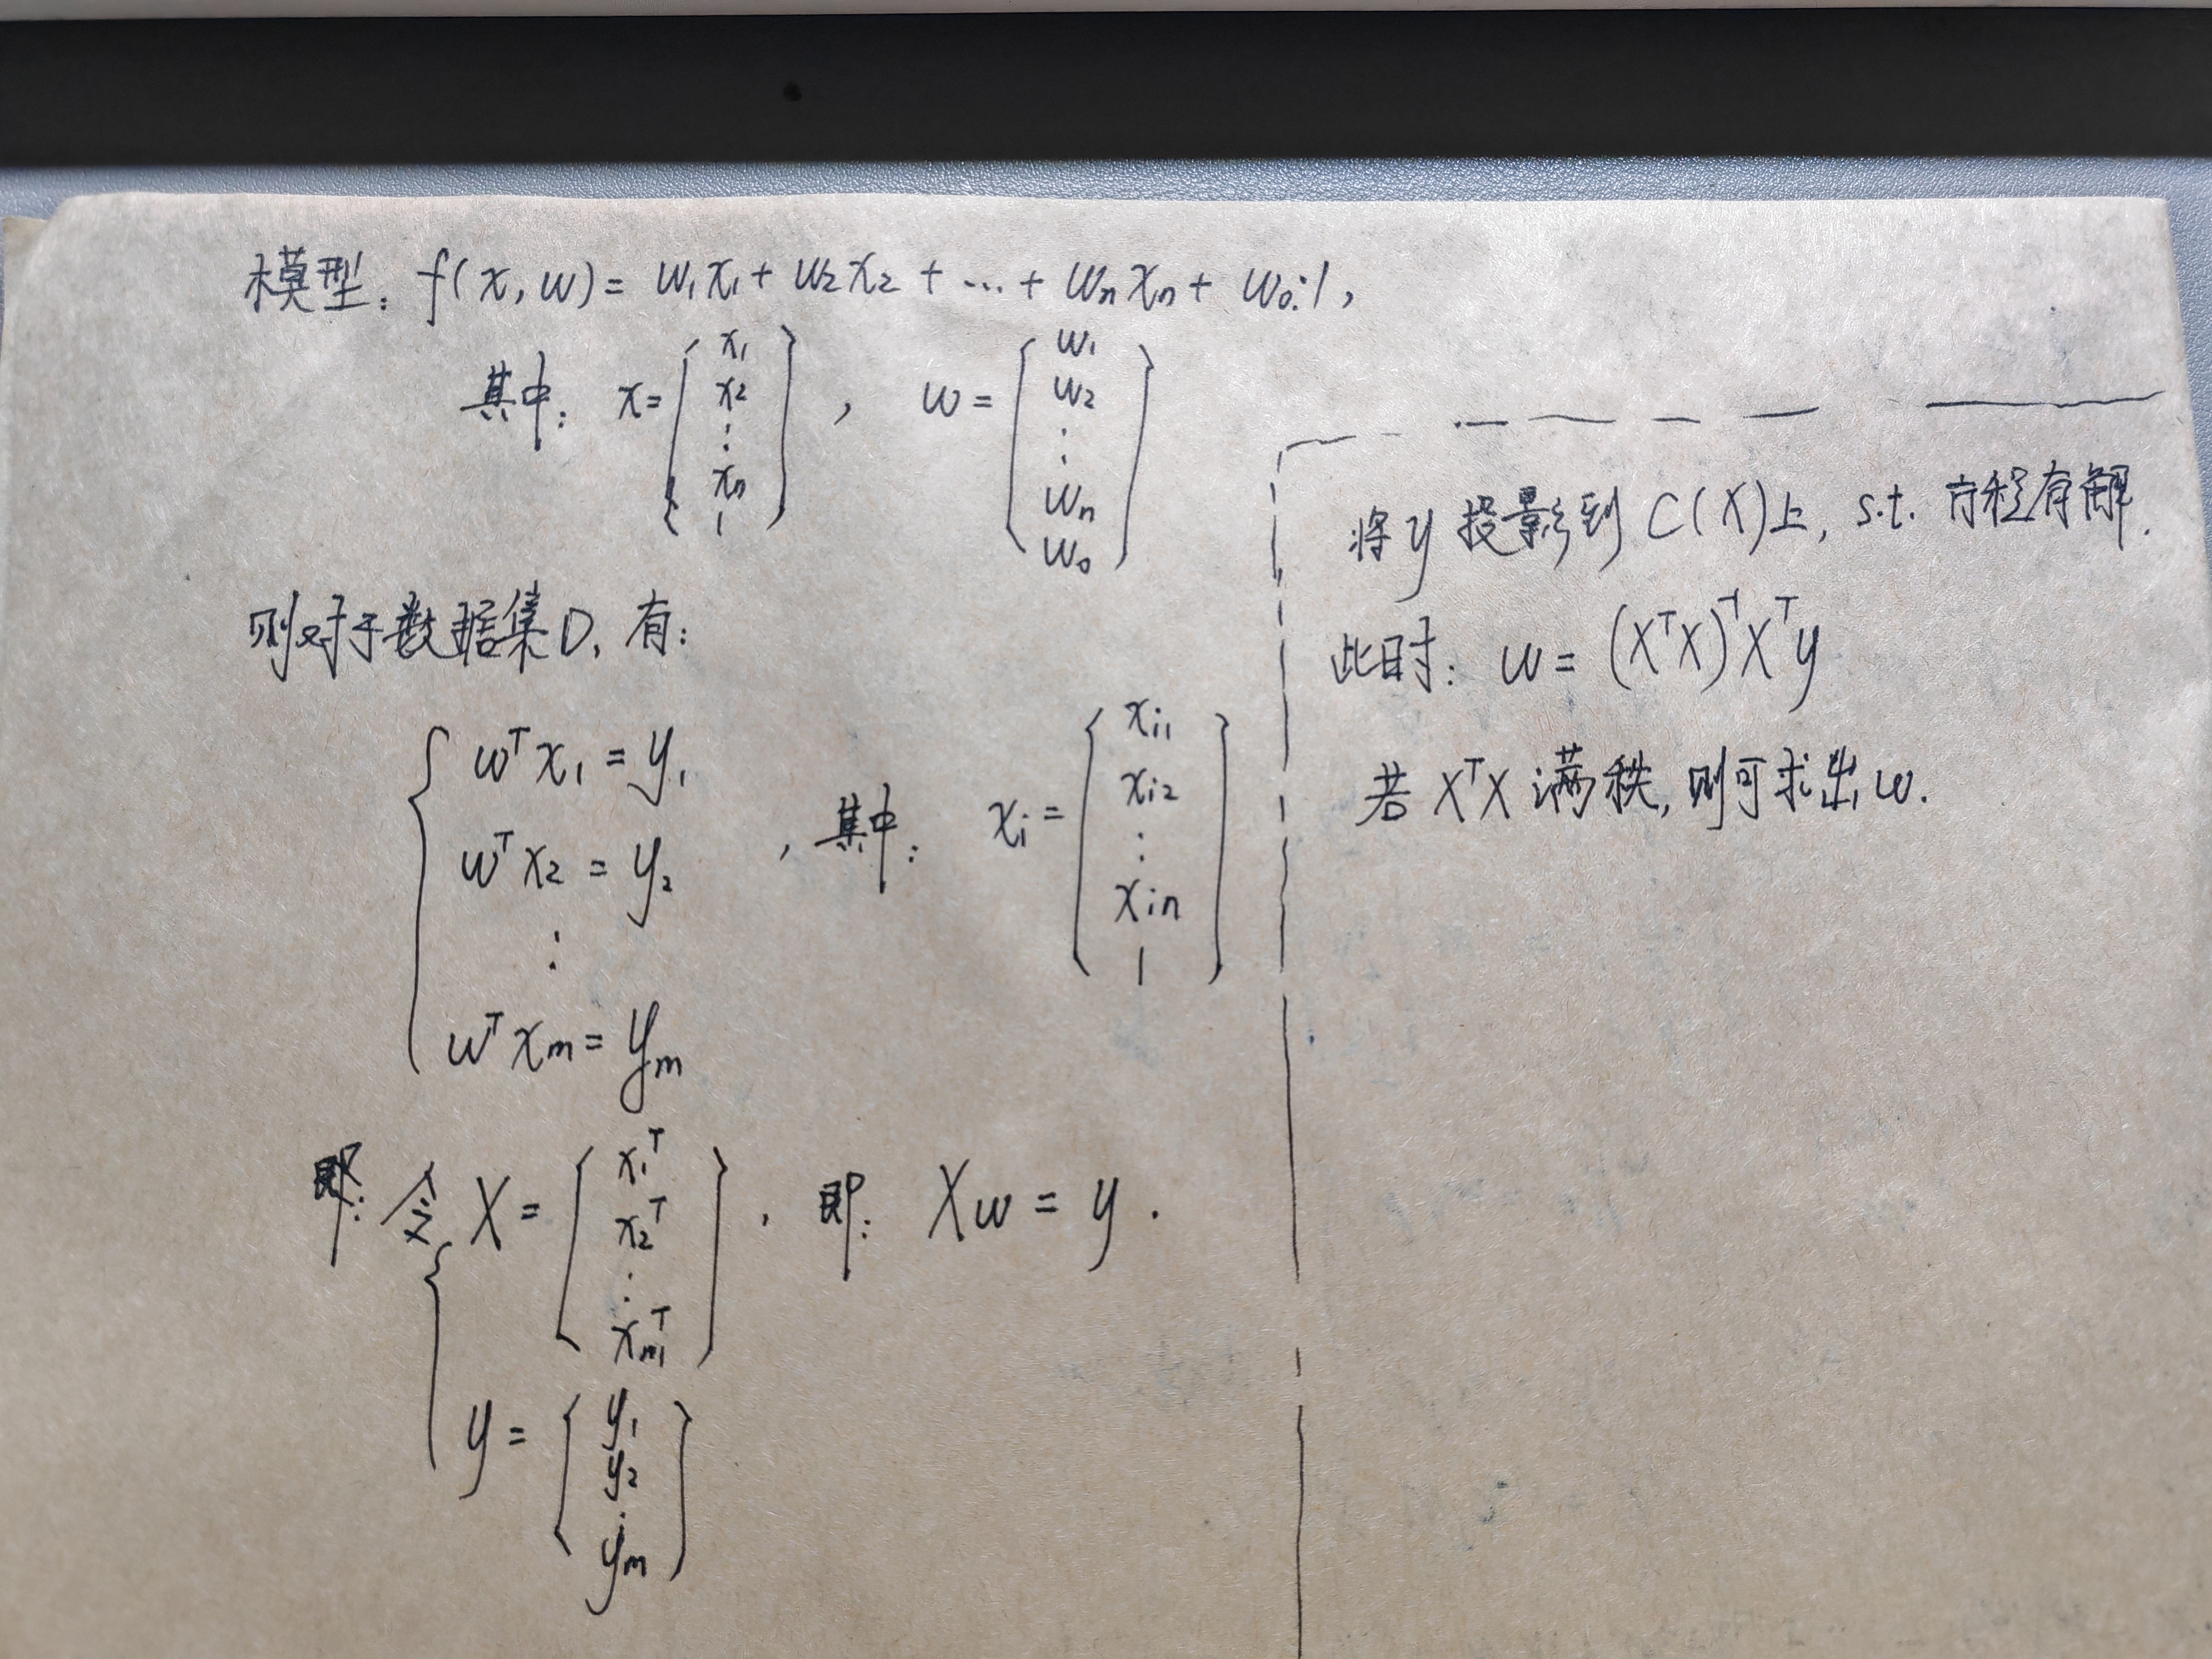 模型: f(x, w) = w₁x₁ + w₂x₂ + ... + wₙxₙ + w₀·1,
其中: x = [x₁ x₂ ⋮ xₙ 1], w = [w₁ w₂ ⋮ wₙ w₀]
则对于数据集D, 有:
{ wᵀx₁ = y₁
wᵀx₂ = y₂
⋮
wᵀxₘ = yₘ
, 其中: xᵢ = [xᵢ₁ xᵢ₂ ⋮ xᵢₙ 1]
即: 令 { X = [x₁ᵀ x₂ᵀ ⋮ xₘᵀ], 即: Xw = y.
y = [y₁ y₂ ⋮ yₘ]
将y投影到C(X)上, s.t. 方程有解.
此时: w = (XᵀX)⁻¹Xᵀy
若 XᵀX 满秩, 则可求出w.